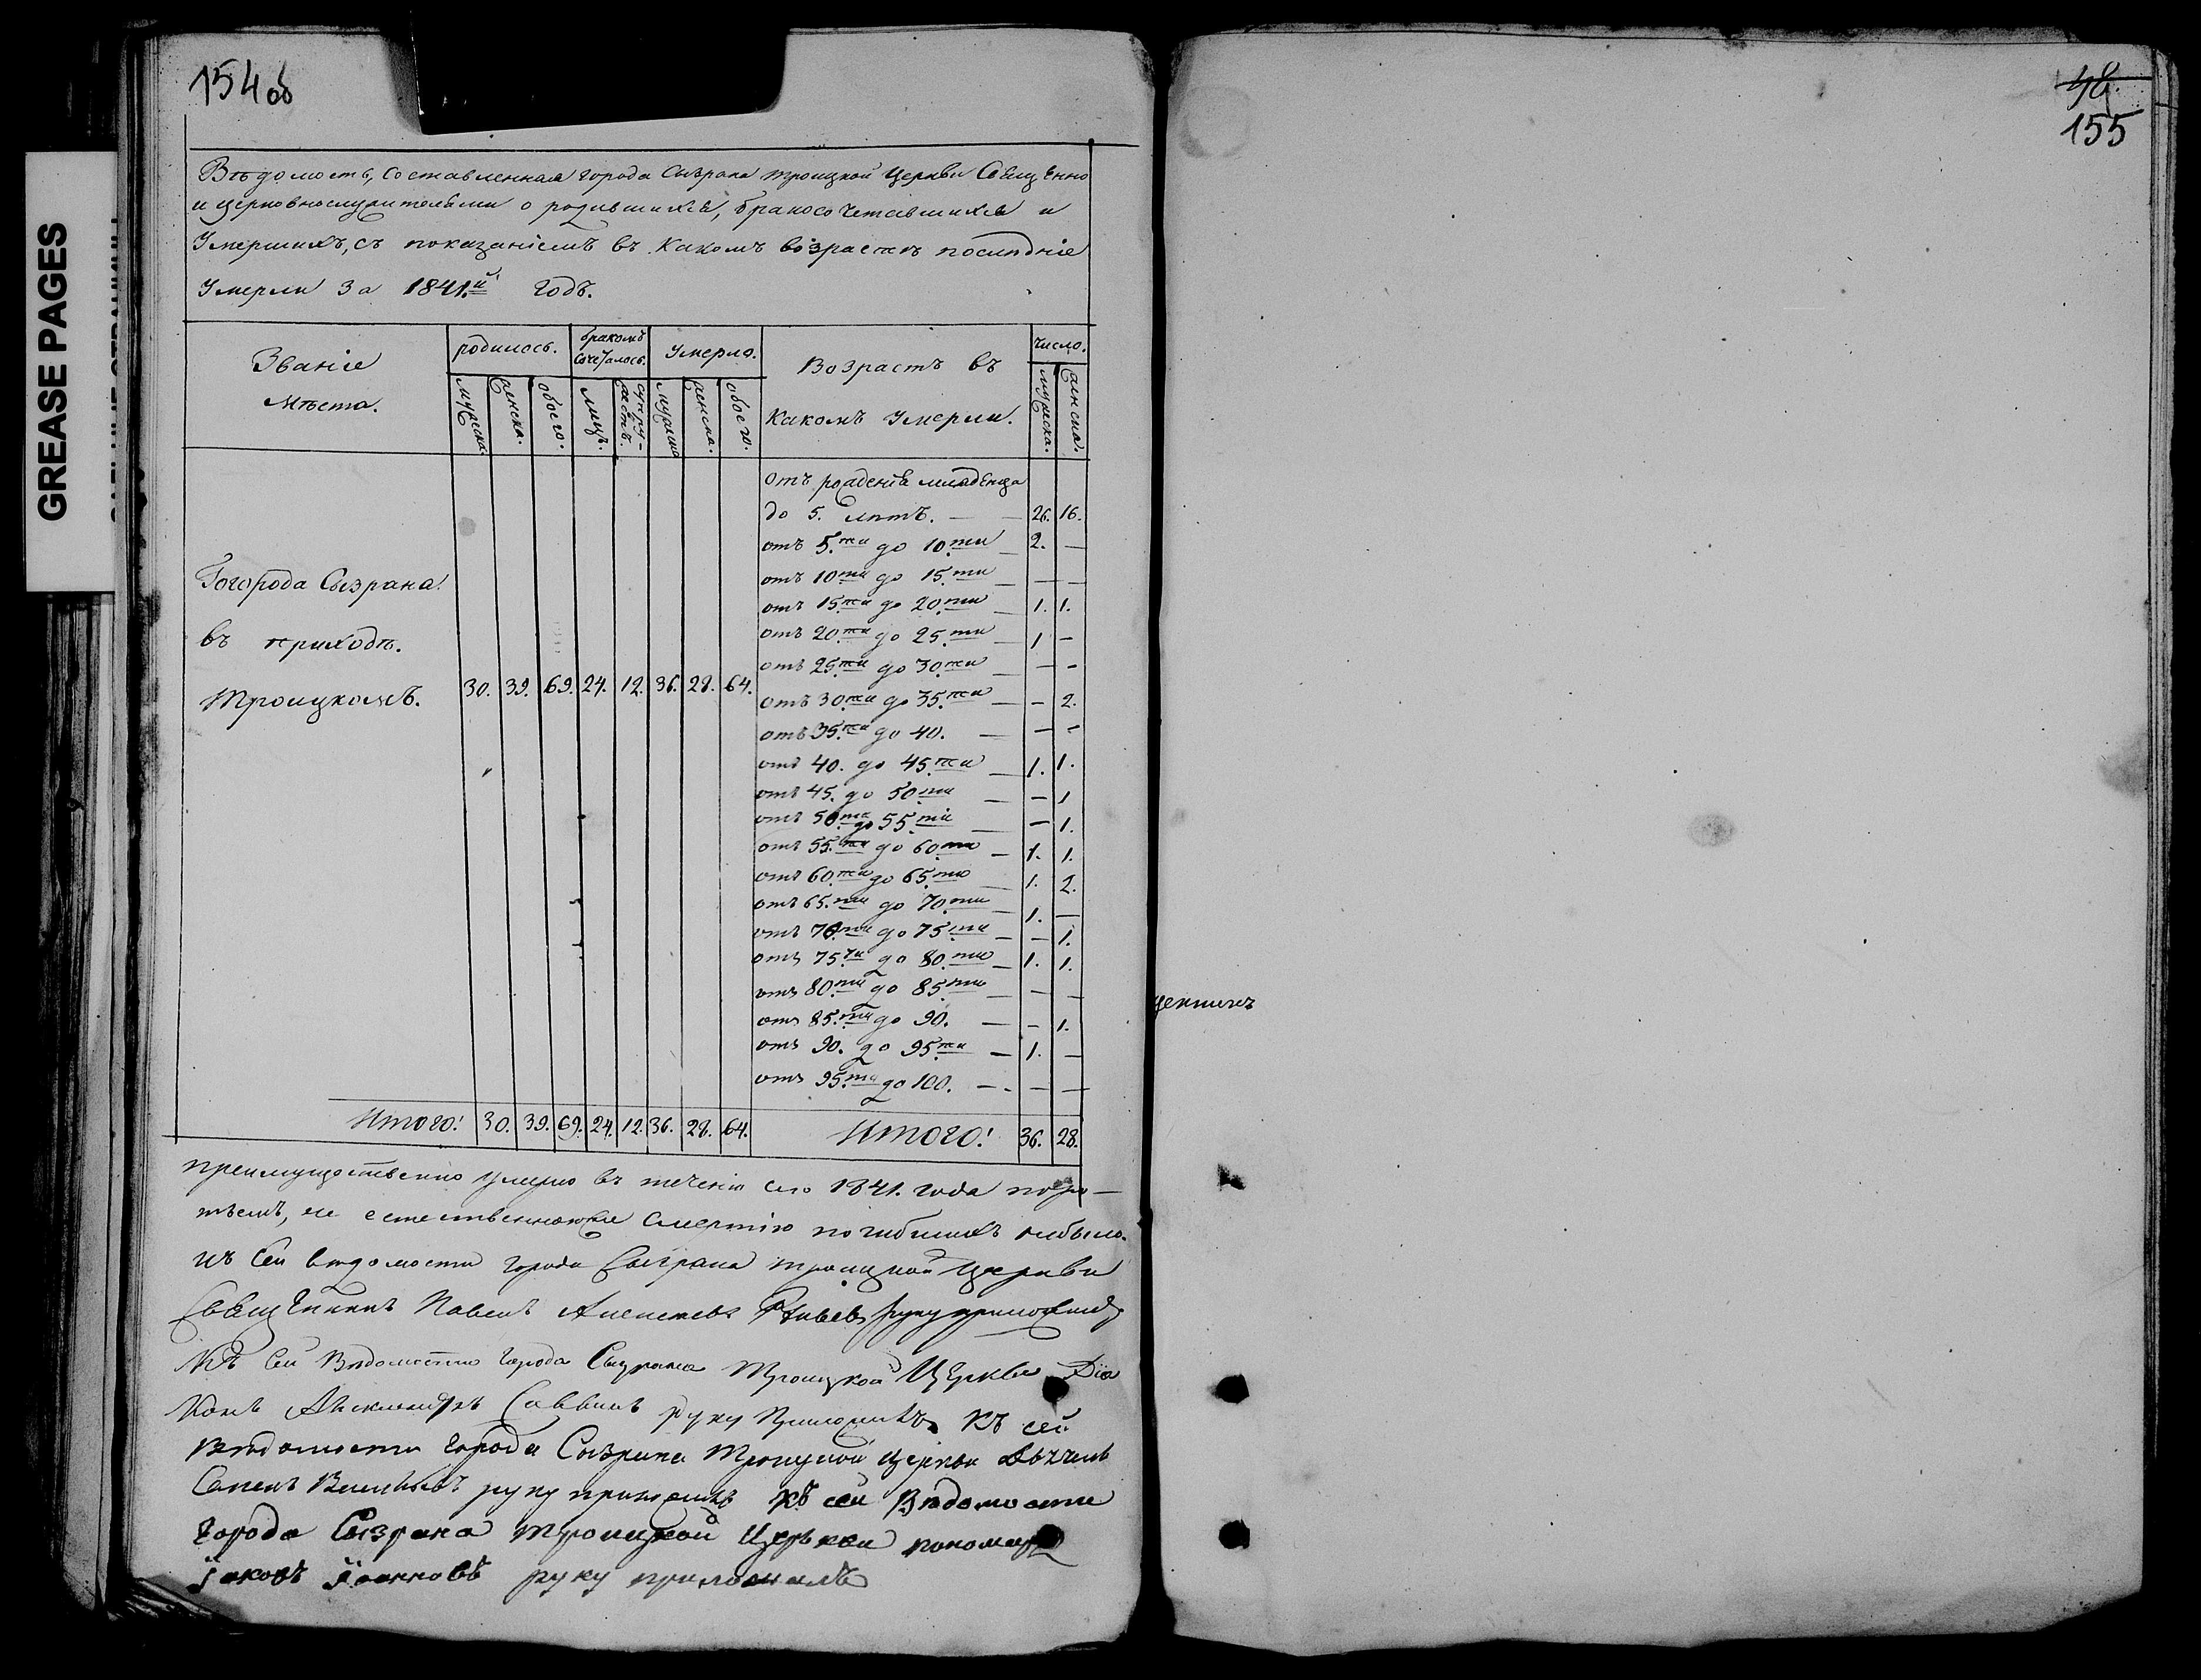 154 об
48.
155
GREASE PAGES
Вѣдомость, составленная города Сызрана троицкой Церкви Священно
и церковнослужителями о родившихся, бракосочетавшихся и
Умершихъ, съ показаніемъ въ какомъ возрастѣ послѣдніе
Умерли за 1841.й годъ.
Званіе мѣста. | родилось. | бракомъ сочеталось. | Умерло. | Возрастъ въ какомъ Умерли. | число.
мужеска. | женска. | обоего. | лицъ. | супружествъ. | мужеска | женска. | обоего. | мужеска. | женска.
отъ рожденія младенца
до 5. лѣтъ. — 26. 16.
отъ 5.ти до 10.ти — 2. —
отъ 10ти до 15.ти — — —
отъ 15.ти до 20.ти — 1. 1.
отъ 20.ти до 25.ти — 1 —
отъ 25.ти до 30.ти — — —
отъ 30.ти до 35.ти — — 2.
отъ 35.ти до 40. — — —
отъ 40. до 45.ти — 1. 1.
отъ 45. до 50.ти — — 1
отъ 50.ти до 55.ти — — 1.
отъ 55.ти до 60.ти — 1. 1.
отъ 60.ти до 65.ти — 1. 2.
отъ 65.ти до 70.ти — 1. —
отъ 70.ти до 75.ти — — 1.
отъ 75.ти до 80.ти — 1. 1.
отъ 80.ти до 85.ти — — —
отъ 85.ти до 90. — — 1.
отъ 90. до 95.ти — 1. —
отъ 95.ти до 100. — — —
Города Сызрана
въ приходѣ.
Троицкомъ. 30. 39. 69. 24. 12. 36. 28. 64.
Итого! 30. 39. 69. 24. 12. 36. 28. 64. Итого! 36. 28.
преимущественно умерло въ теченіи сего 1841. года
не естественною смертію погибшихъ небыло.
къ сей вѣдомости города Сызрана троицкой церкви
Священникъ Павелъ руку приложилъ
Къ сей Вѣдомости города Сызрана Троицкой Церкви Діа
конъ Александръ Саввинъ руку приложилъ Къ сей
вѣдомости города Сызрана Троицкой церкви дьячекъ
Семенъ руку приложилъ Къ сей Вѣдомости
города Сызрана троицкой Церькви пономарь
Іаковъ Іоанновъ руку приложилъ